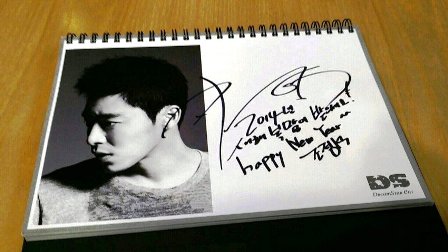 2014년
새해 복 많이 받으세요!
happy New Year ^^
DS